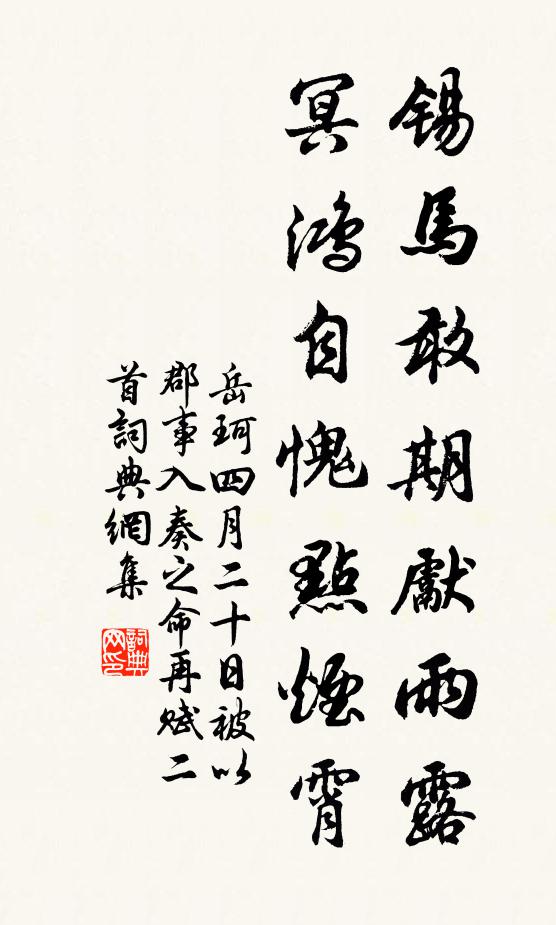 錫馬敢期獻雨露
冥鴻自愧點煙霄
岳珂四月二十日被以
郡事入奏之命再賦二
首詞典網集
詞典网印